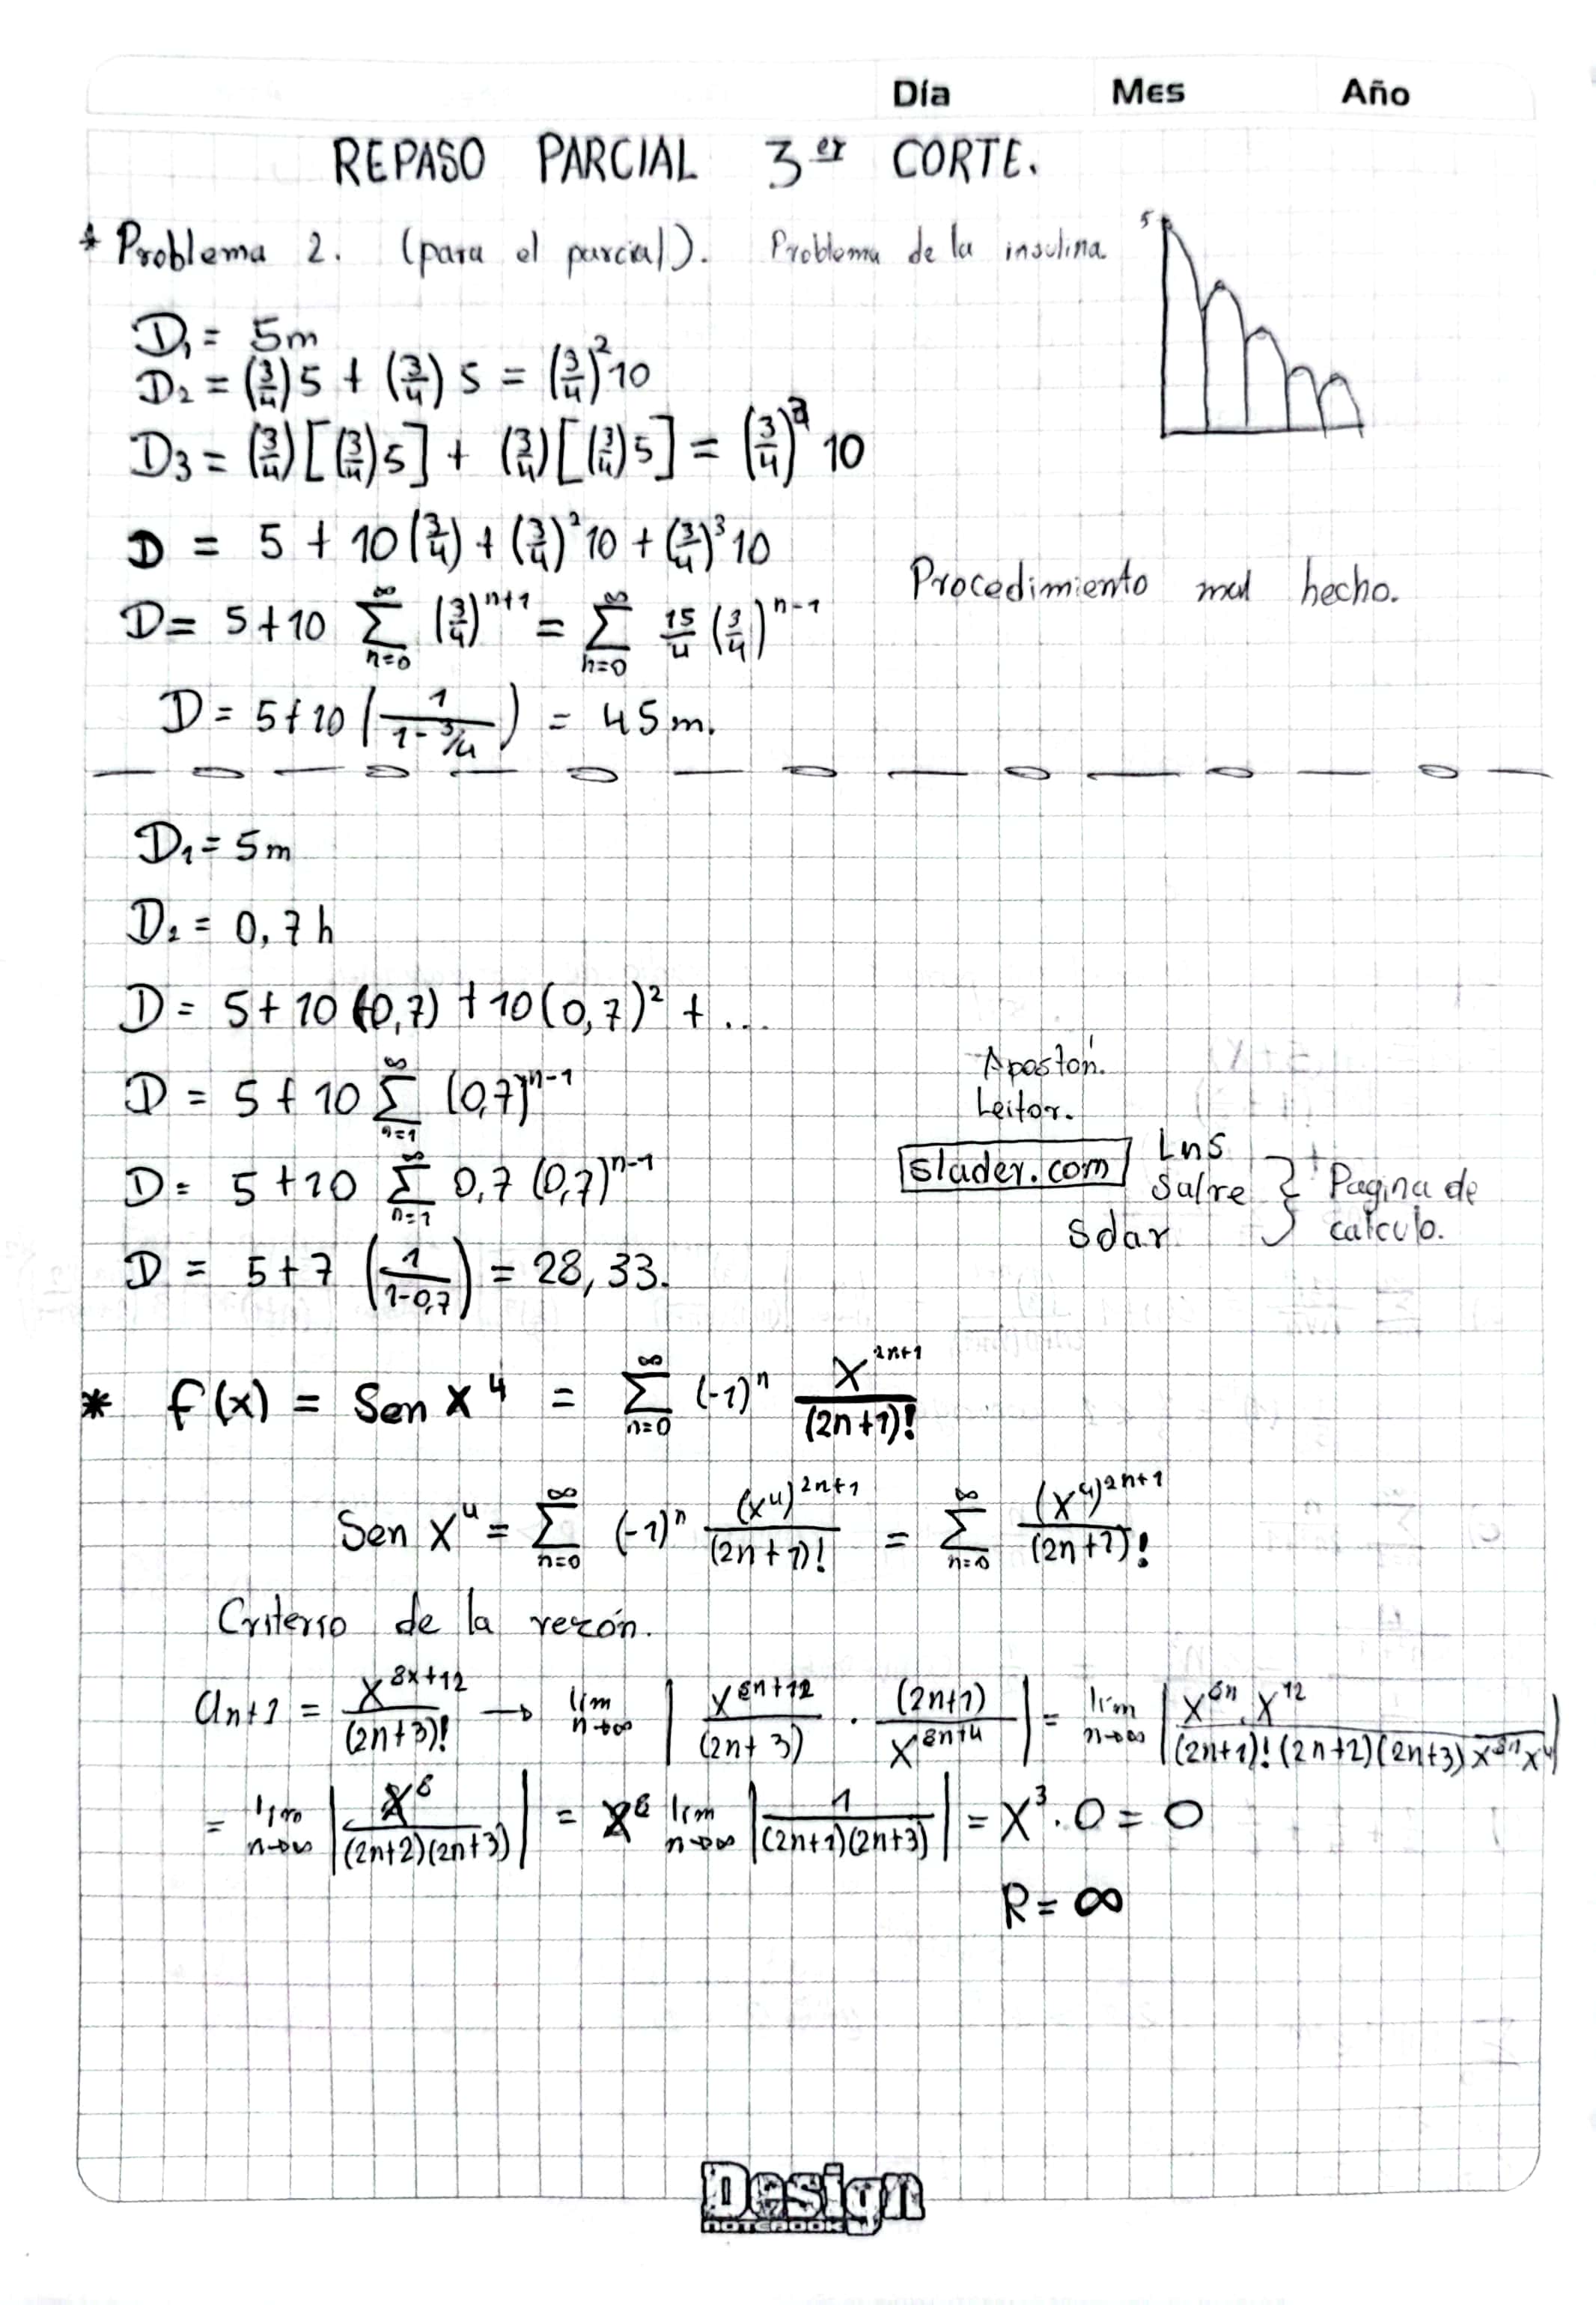 Día Mes Año
REPASO PARCIAL 3er CORTE.
* Problema 2. (para el parcial). Problema de la insulina.
5
D₁ = 5m
D₂ = (3/4)5 + (3/4)5 = (3/4)²10
D₃ = (3/4)[(3/4)5] + (3/4)[(3/4)5] = (3/4)² 10
D = 5 + 10(3/4) + (3/4)²10 + (3/4)³10
Procedimiento mal hecho.
D = 5+10 ∑_{n=0}^{∞} (3/4)^{n+1} = ∑_{n=0}^{∞} 15/4 (3/4)^{n-1}
D = 5+10 (1/(1-3/4)) = 45m.
D₁ = 5m
D₂ = 0,7h
D = 5+10(0,7) + 10(0,7)² + ...
D = 5+10 ∑_{n=1}^{∞} (0,7)^{n-1}
D = 5+10 ∑_{n=1}^{∞} 0,7 (0,7)^{n-1}
D = 5+7 (1/(1-0,7)) = 28,33.
Apostón.
Leitor.
slader.com
Lns
Salre
Sdar
} Pagina de
calculo.
* f(x) = Sen x⁴ = ∑_{n=0}^{∞} (-1)ⁿ x^{2n+1}/(2n+1)!
Sen x⁴ = ∑_{n=0}^{∞} (-1)ⁿ (x⁴)^{2n+1}/(2n+1)! = ∑_{n=0}^{∞} (x⁴)^{2n+1}/(2n+1)!
Criterio de la rezón.
an+1 = x^{8x+12}/(2n+3)! → lim_{n→∞} | x^{8n+12}/(2n+3) · (2n+1)/x^{8n+4} | = lim_{n→∞} | x^{8n}·x^{12}/((2n+1)!(2n+2)(2n+3)x^{8n}x⁴) |
= lim_{n→∞} | x⁸/((2n+2)(2n+3)) | = x⁸ lim_{n→∞} | 1/((2n+1)(2n+3)) | = x³·0 = 0
R = ∞
Design
NOTEBOOK